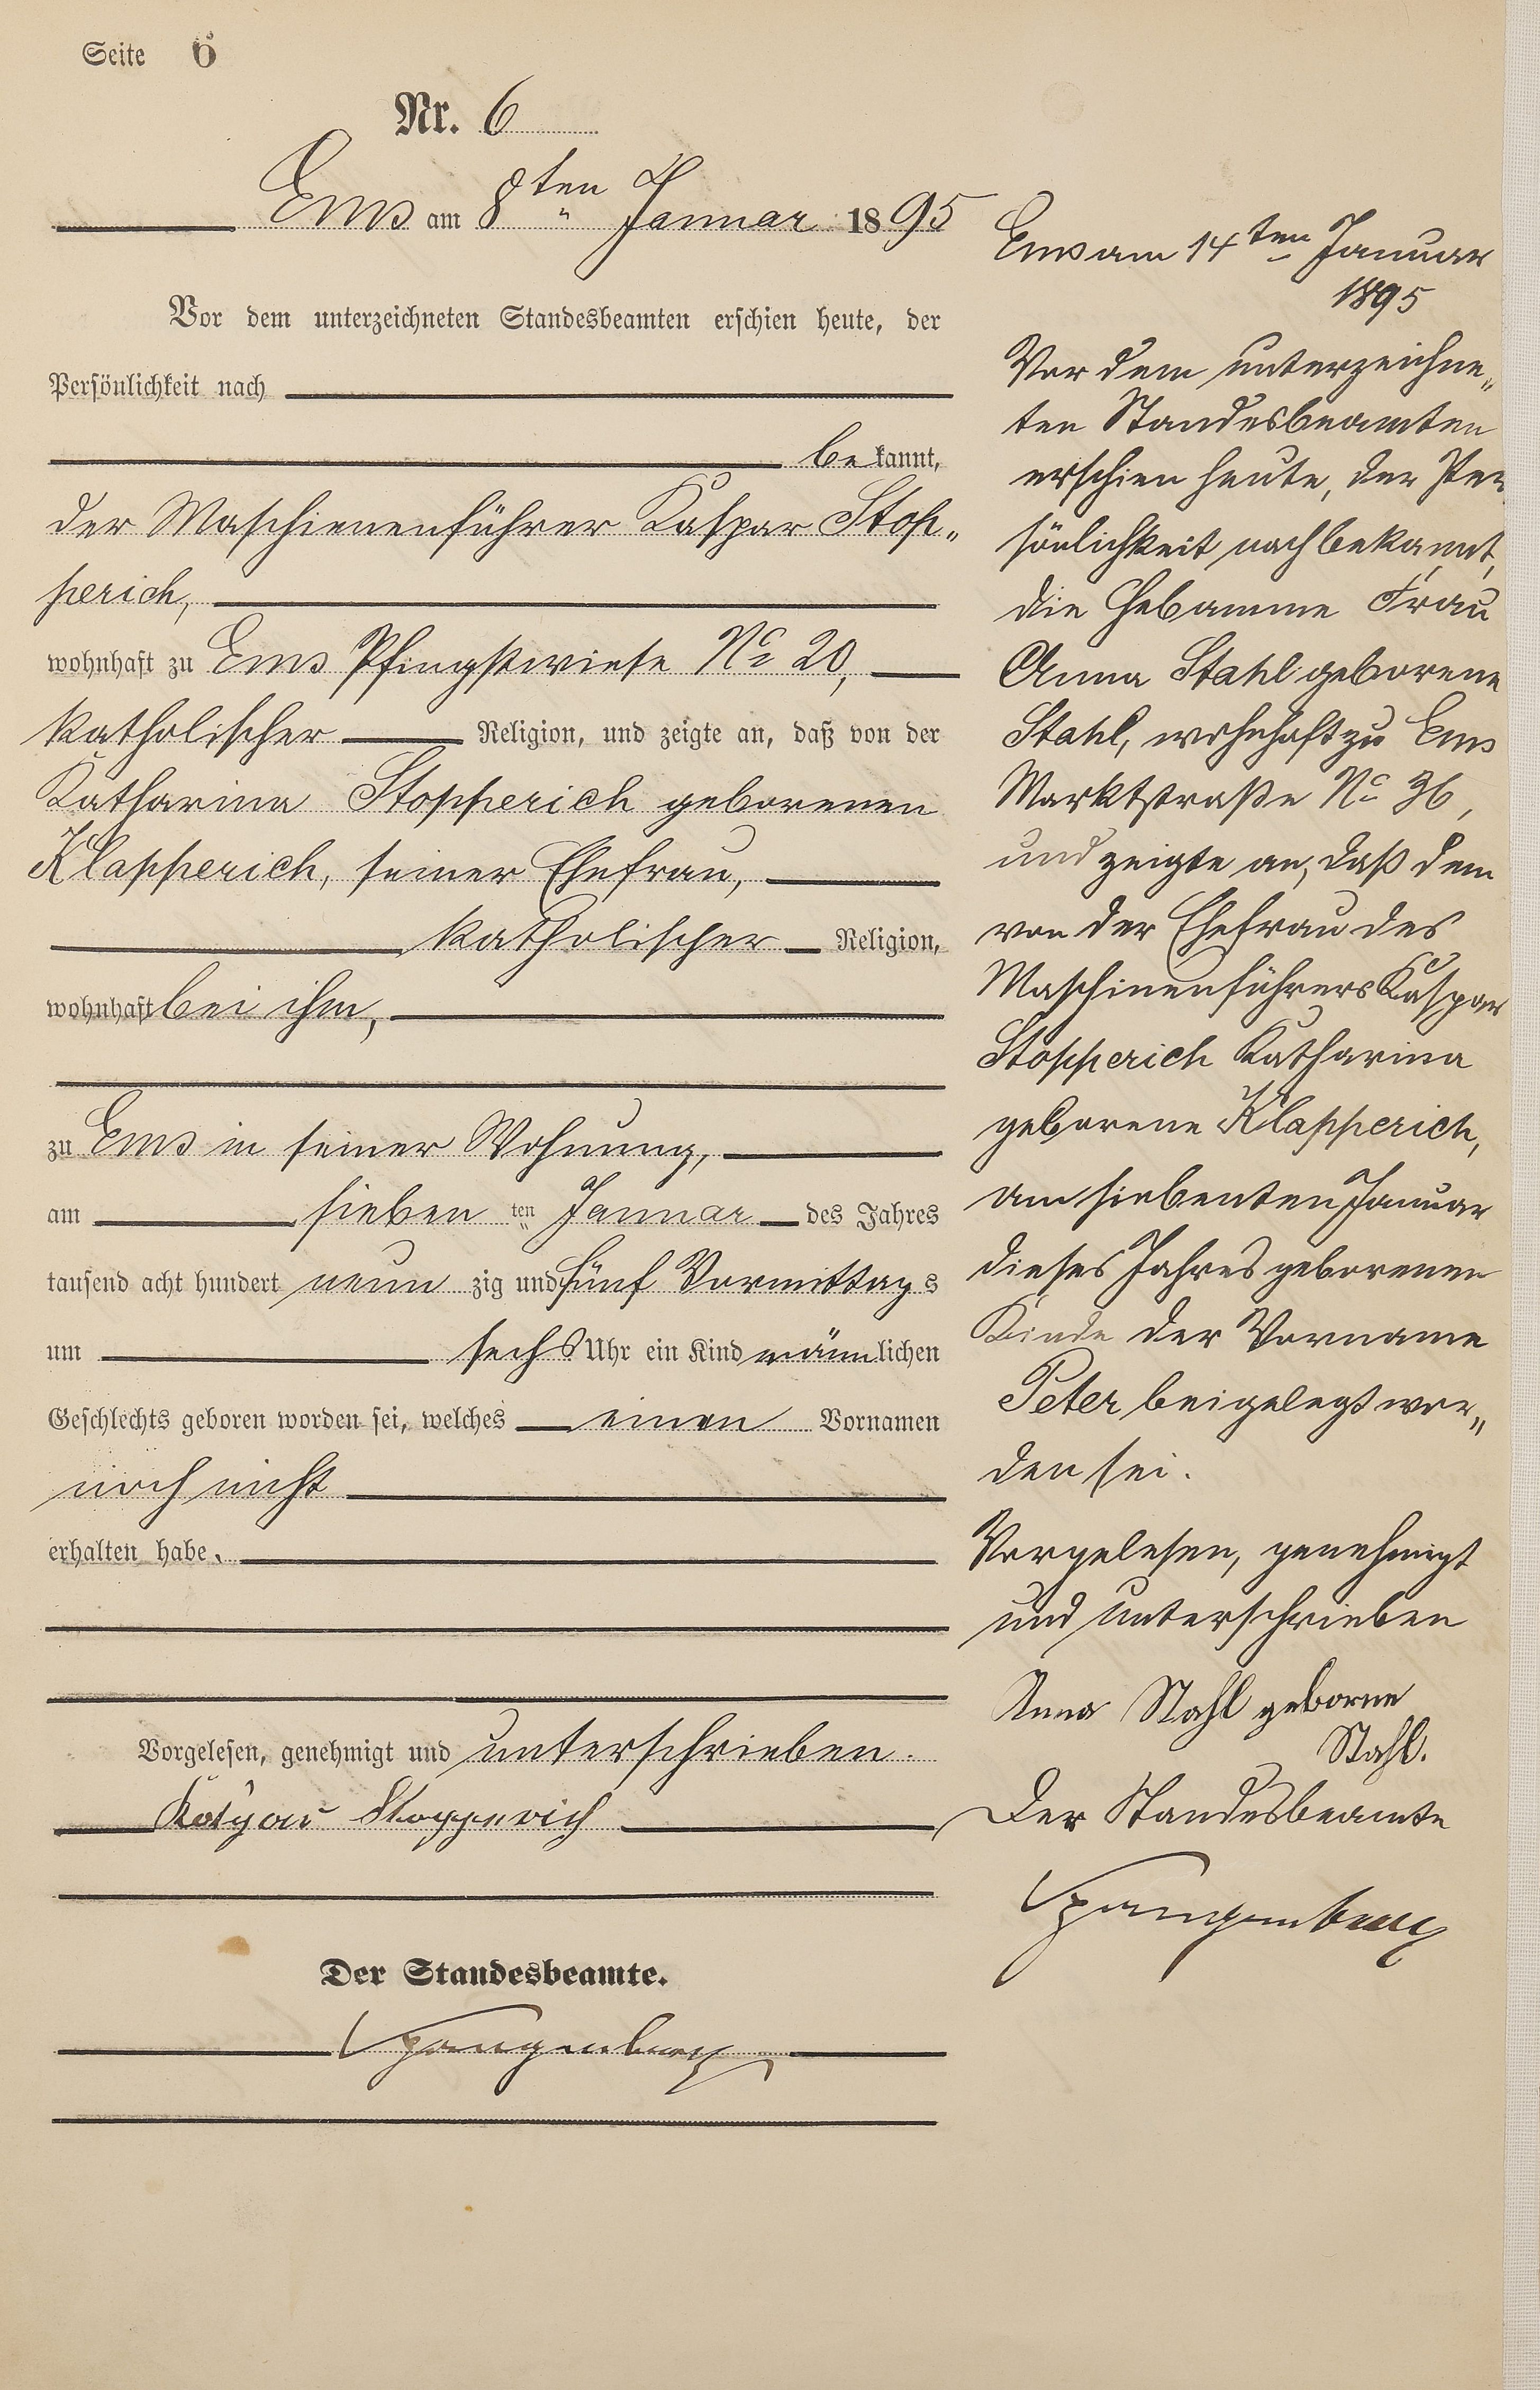 Seite 6
Nr. 6
Ems am 8ten Januar 1895
Vor dem unterzeichneten Standesbeamten erschien heute, der
Persönlichkeit nach
bekannt,
der Maschienenführer Kaspar Stop„
perich,
wohnhaft zu Ems Pfingstwiese No 20,
katholischer Religion, und zeigte an, daß von der
Katharina Stopperich geborenen
Klapperich, seiner Ehefrau,
katholischer Religion,
wohnhaft bei ihm,
zu Ems in seiner Wohnung,
am sieben ten Januar des Jahres
tausend acht hundert neun zig und fünf Vormittags
um sechs Uhr ein Kind männlichen
Geschlechts geboren worden sei, welches einen Vornamen
noch nicht
erhalten habe.
Vorgelesen, genehmigt und unterschrieben.
Kaspar Stopperich
Der Standesbeamte.
Spangenberg
Ems am 14ten Januar
1895
Vor dem unterzeichne„
ten Standesbeamten
erschien heute, der Per
sönlichkeit nach bekannt,
die Hebamme Frau
Anna Stahl geborene
Stahl, wohnhaft zu Ems
Marktstraße No 36,
und zeigte an, daß dem
von der Ehefrau des
Maschinenführers Kaspar
Stopperich Katharina
geborene Klapperich,
am siebenten Januar
dieses Jahres geborenen
Kinde der Vorname
Peter beigelegt wor„
den sei.
Vorgelesen, genehmigt
und unterschrieben
Anna Stahl geborne
Stahl.
Der Standesbeamte
Spangenberg